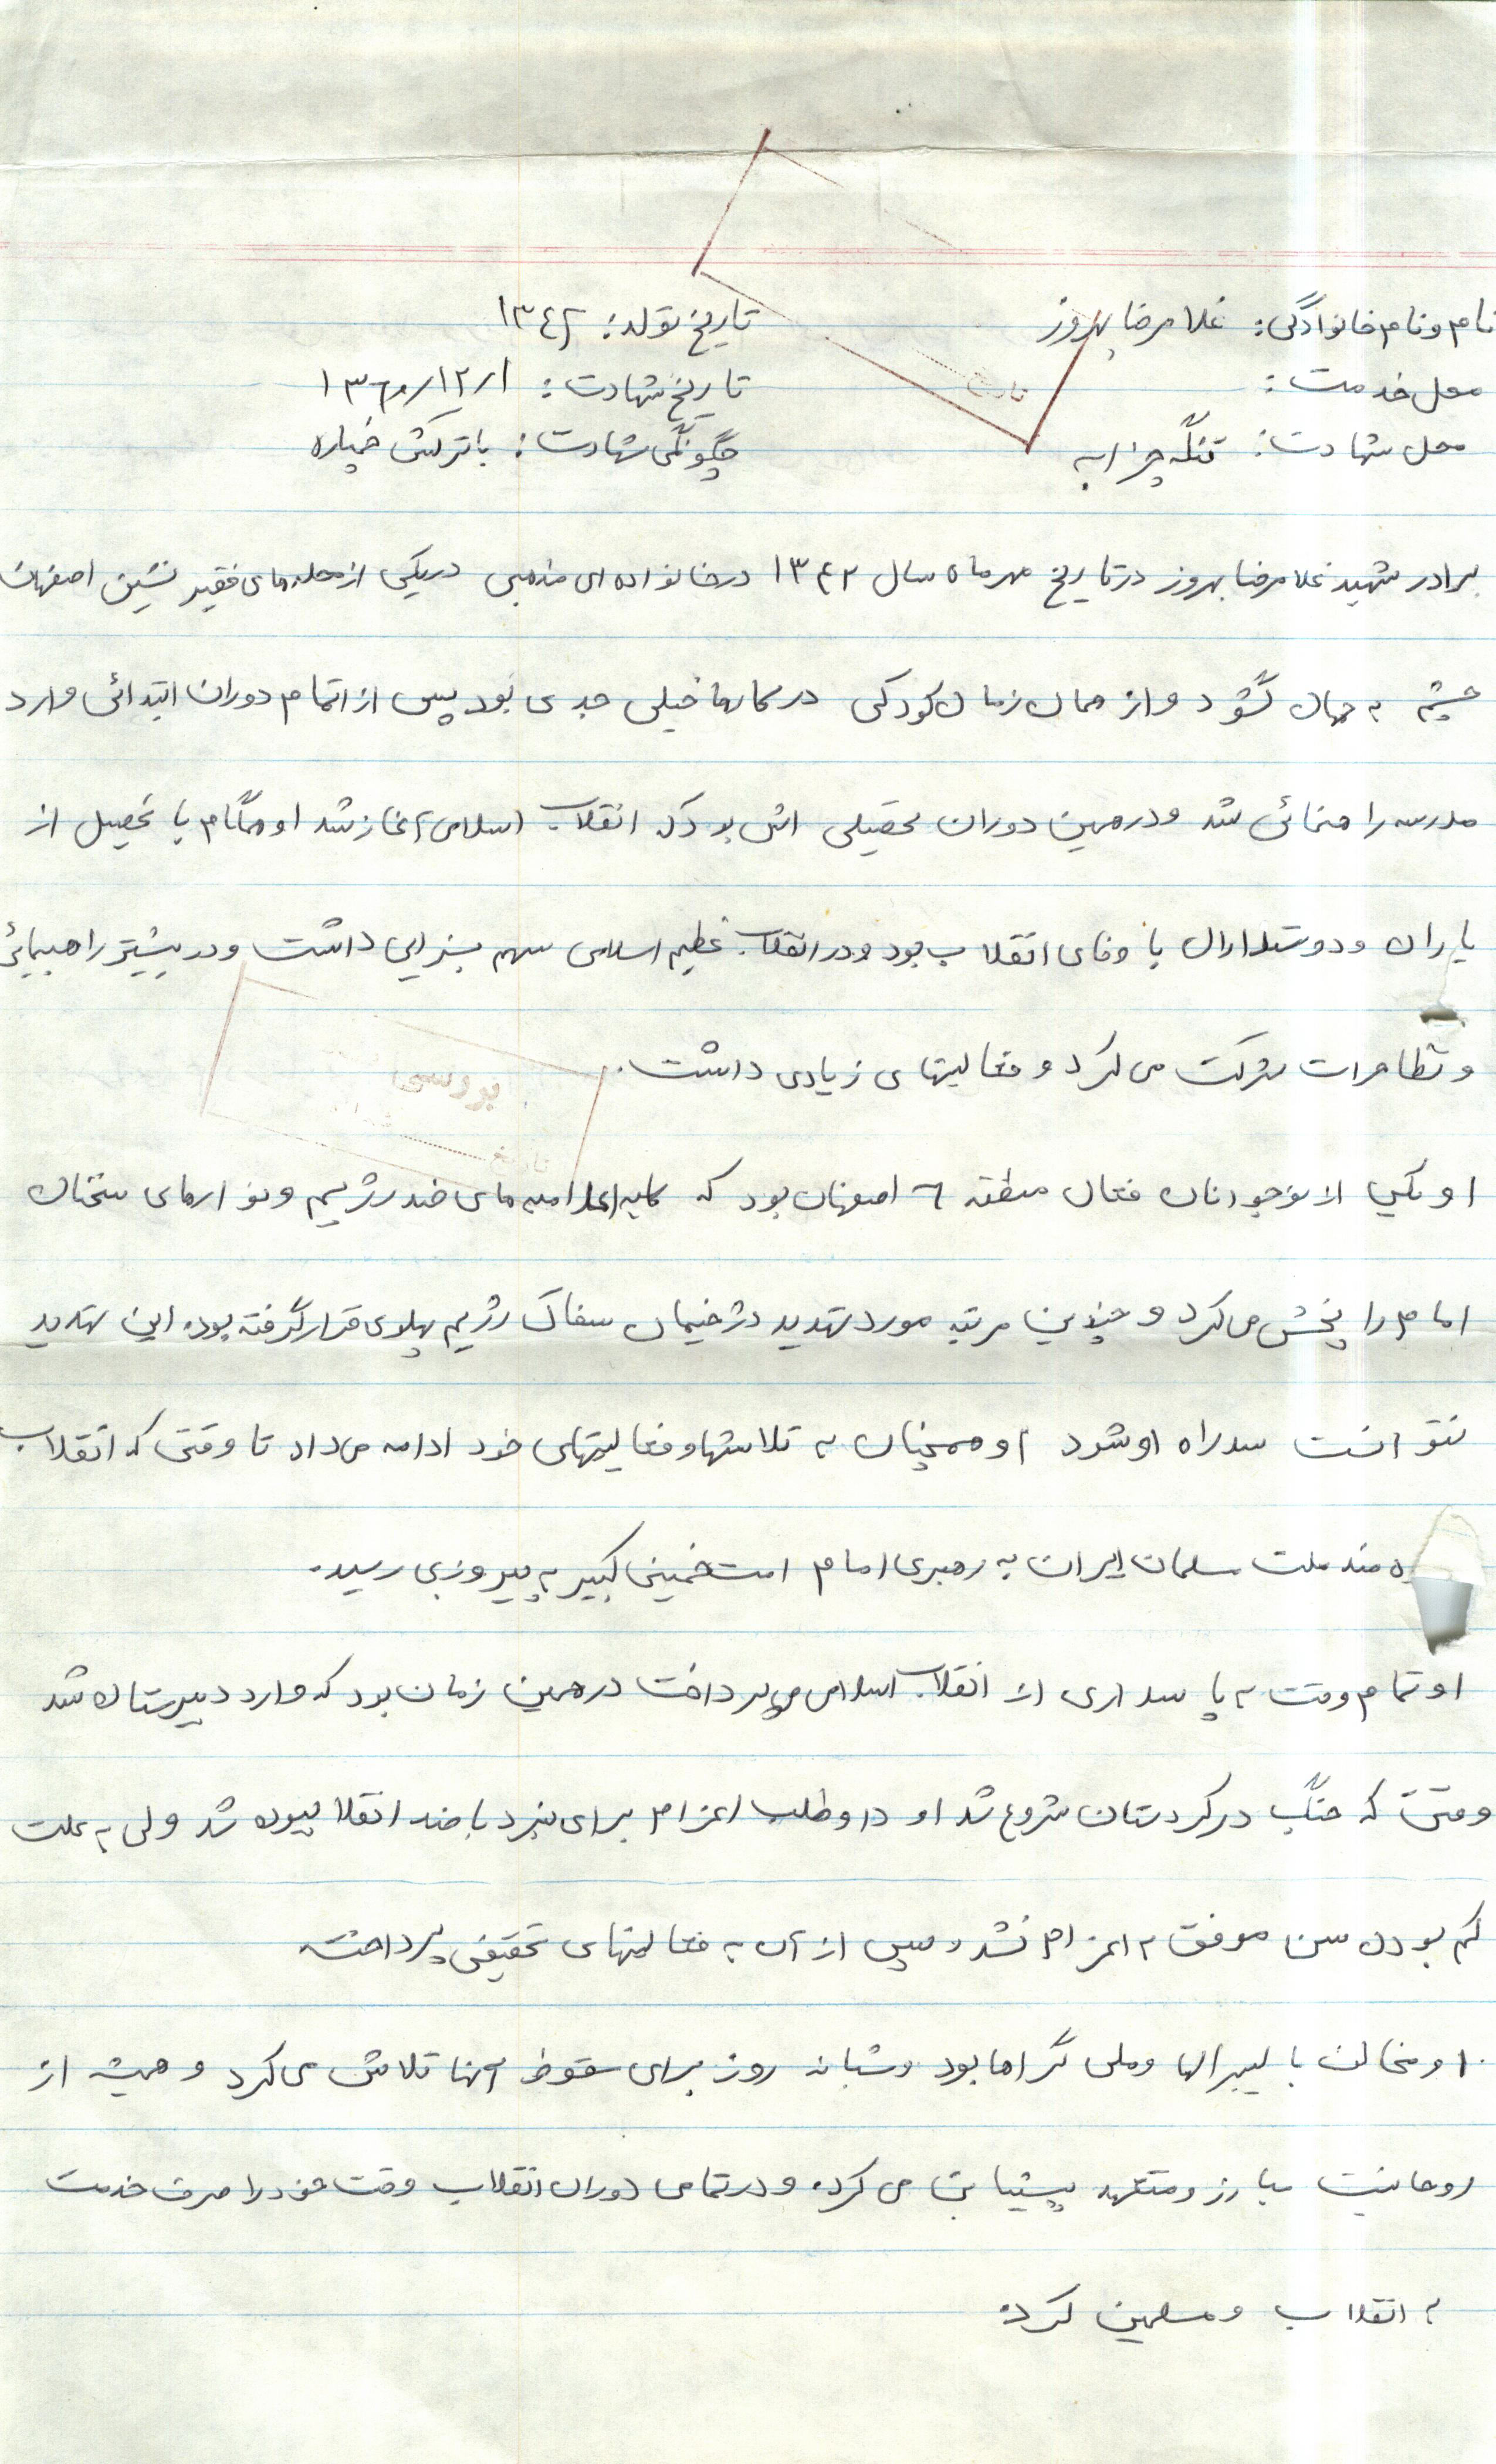 نام و نام خانوادگی: غلامرضا بهروز تاریخ تولد: ۱۳٤۲
محل خدمت: تاریخ شهادت:
محل شهادت: تنگه چزابه چگونگی شهادت: با ترکش خمپاره
تاریخ
برادر شهید غلامرضا بهروز در تاریخ مهرماه سال ۱۳۴۲ در خانواده ای مذهبی در یکی از محله های فقیر نشین اصفهان
چشم به جهان گشود و از همان زمان کودکی در کارها خیلی جدی بود پس از اتمام دوران ابتدائی وارد
مدرسه راهنمائی شد و در همین دوران تحصیلی اش بود که انقلاب اسلامی آغاز شد او هنگام با تحصیل از
یاران و دوستداران با وفای انقلاب بود و در انقلاب عظیم اسلامی سهم بسزایی داشت و در بیشتر راهپیمائی
و تظاهرات شرکت می کرد و فعالیتهای زیادی داشت.
بررسی
تاریخ
او یکی از نوجوانان فعال منطقه ٦ اصفهان بود که اعلامیه های ضد رژیم و نوارهای سخنان
امام را پخش می کرد و چندین مرتبه مورد تهدید دژخیمان سفاک رژیم پهلوی قرار گرفته بود. این تهدید
نتوانست سد راه او شود او همچنان به تلاشها و فعالیتهای خود ادامه می داد تا وقتی که انقلاب
مند ملت مسلمان ایران به رهبری امام امت خمینی کبیر به پیروزی رسید.
او تمام وقت به پاسداری از انقلاب اسلامی می پرداخت در همین زمان بود که وارد دبیرستان شد
وقتی که جنگ در کردستان شروع شد او داوطلب اعزام برای نبرد با ضد انقلابیون شد ولی به علت
کم بودن سن موفق به اعزام نشد و سپس از آن به فعالیتهای تحقیقی پرداخت.
او مخالف با لیبرالها و ملی گراها بود و شبانه روز برای سقوط آنها تلاش می کرد و همیشه از
روحانیت مبارز و متعهد پشتیبانی می کرد. و در تمامی دوران انقلاب وقت خود را صرف خدمت
به انقلاب و مسلمین کرد.